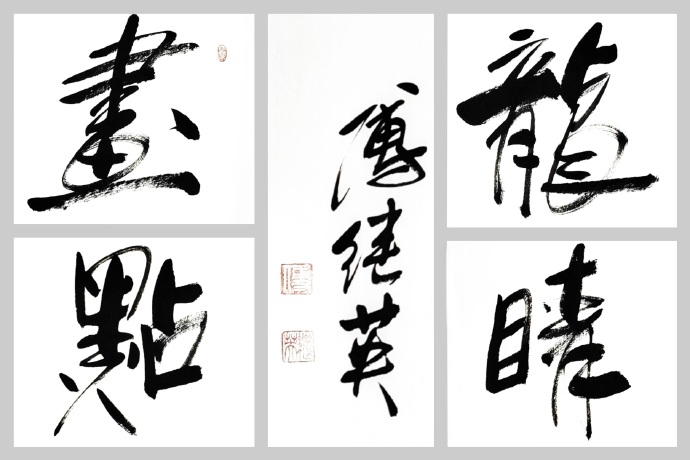 畫
龍
點
睛
傅继英